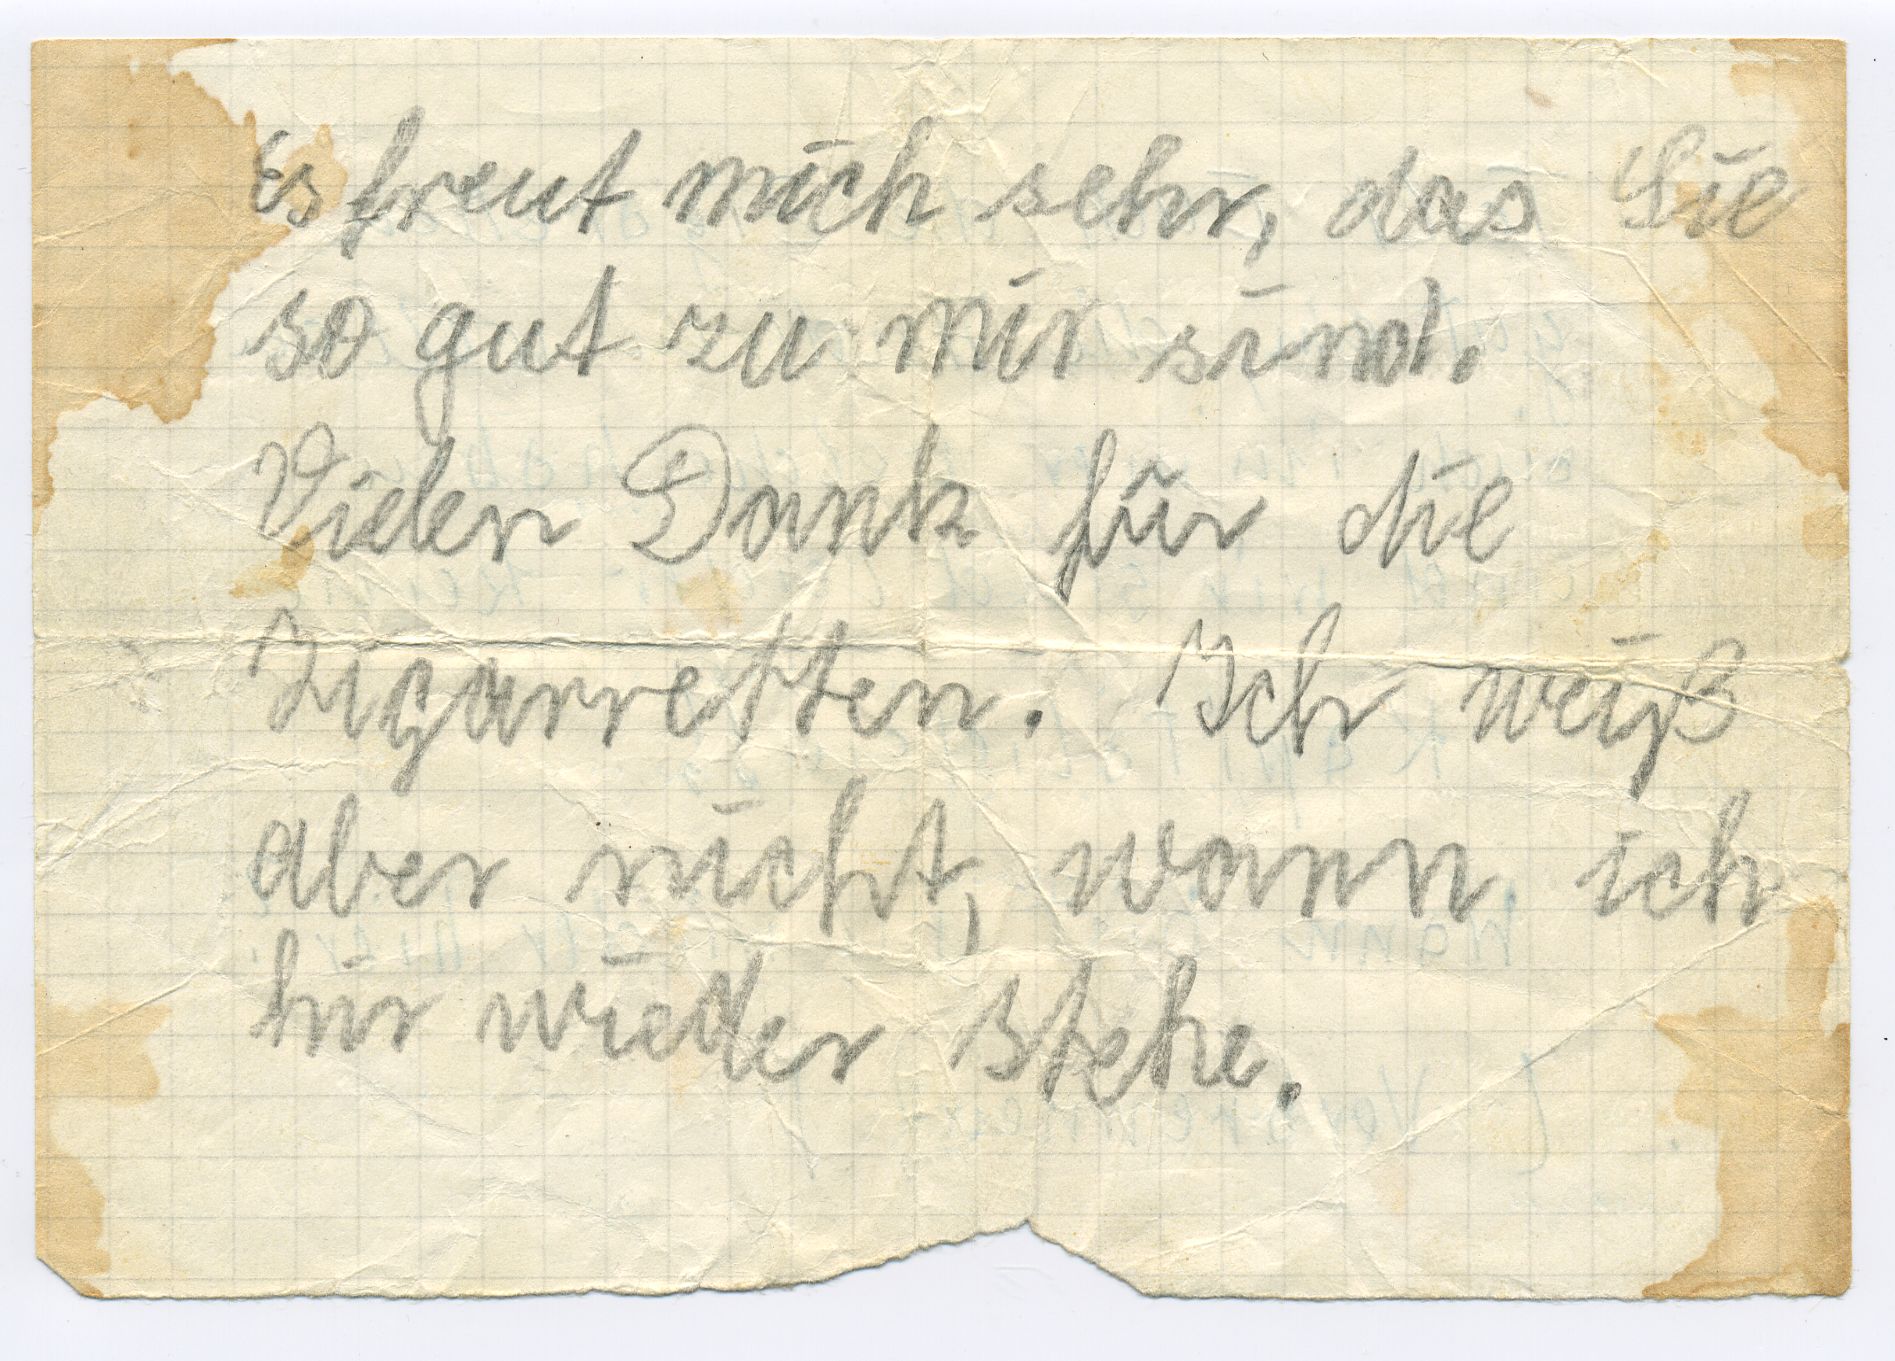 Es freut mich sehr, das Sie
so gut zu mir sind.
Vielen Dank für die
Zigarretten. Ich weiß
aber nicht, wann ich
hir wieder stehe.